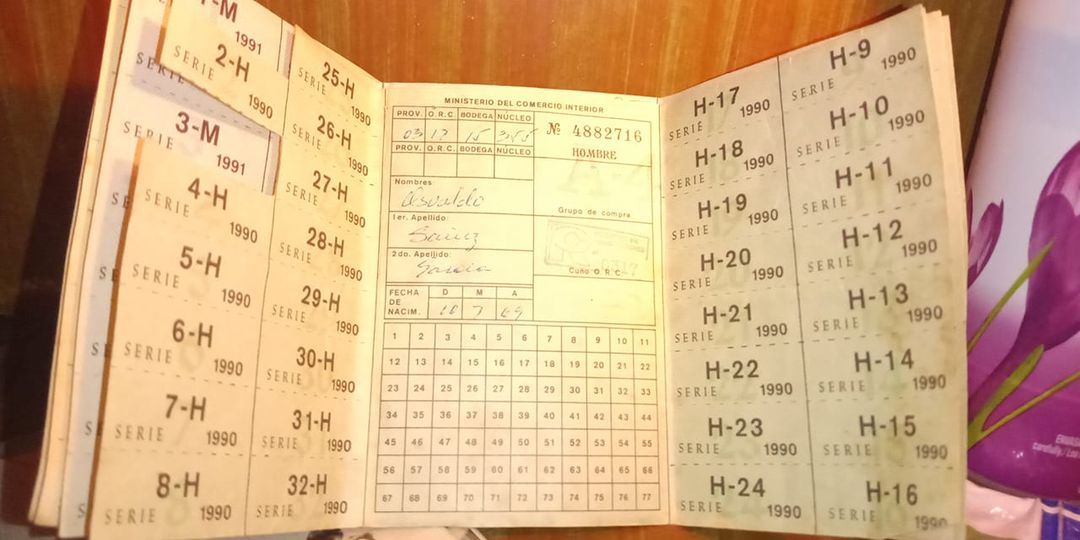 1-M
1991
2-H
SERIE 1990
SERIE
3-M
SERIE 1991
4-H
SERIE 1990
5-H
SERIE 1990
6-H
SERIE 1990
7-H
SERIE 1990
8-H
SERIE 1990
25-H
SERIE 1990
26-H
SERIE 1990
27-H
SERIE 1990
28-H
SERIE 1990
29-H
SERIE 1990
30-H
SERIE 1990
31-H
SERIE 1990
32-H
SERIE 1990
MINISTERIO DEL COMERCIO INTERIOR
PROV. O.R.C. BODEGA NÚCLEO
03 17 15
PROV. O.R.C. BODEGA NÚCLEO
Nº 4882716
HOMBRE
Nombres
Osvaldo
1er. Apellido
Sainz
2do. Apellido:
Garcia
Grupo de compra
Cuño O.R.C.
FECHA DE NACIM. D M A
10 7 69
1 2 3 4 5 6 7 8 9 10 11
12 13 14 15 16 17 18 19 20 21 22
23 24 25 26 27 28 29 30 31 32 33
34 35 36 37 38 39 40 41 42 43 44
45 46 47 48 49 50 51 52 53 54 55
56 57 58 59 60 61 62 63 64 65 66
67 68 69 70 71 72 73 74 75 76 77
H-17
SERIE 1990
H-18
SERIE 1990
H-19
SERIE 1990
H-20
SERIE 1990
H-21
SERIE 1990
H-22
SERIE 1990
H-23
SERIE 1990
H-24
SERIE 1990
H-9
SERIE 1990
H-10
SERIE 1990
H-11
SERIE 1990
H-12
SERIE 1990
H-13
SERIE 1990
H-14
SERIE 1990
H-15
SERIE 1990
H-16
SERIE 1990